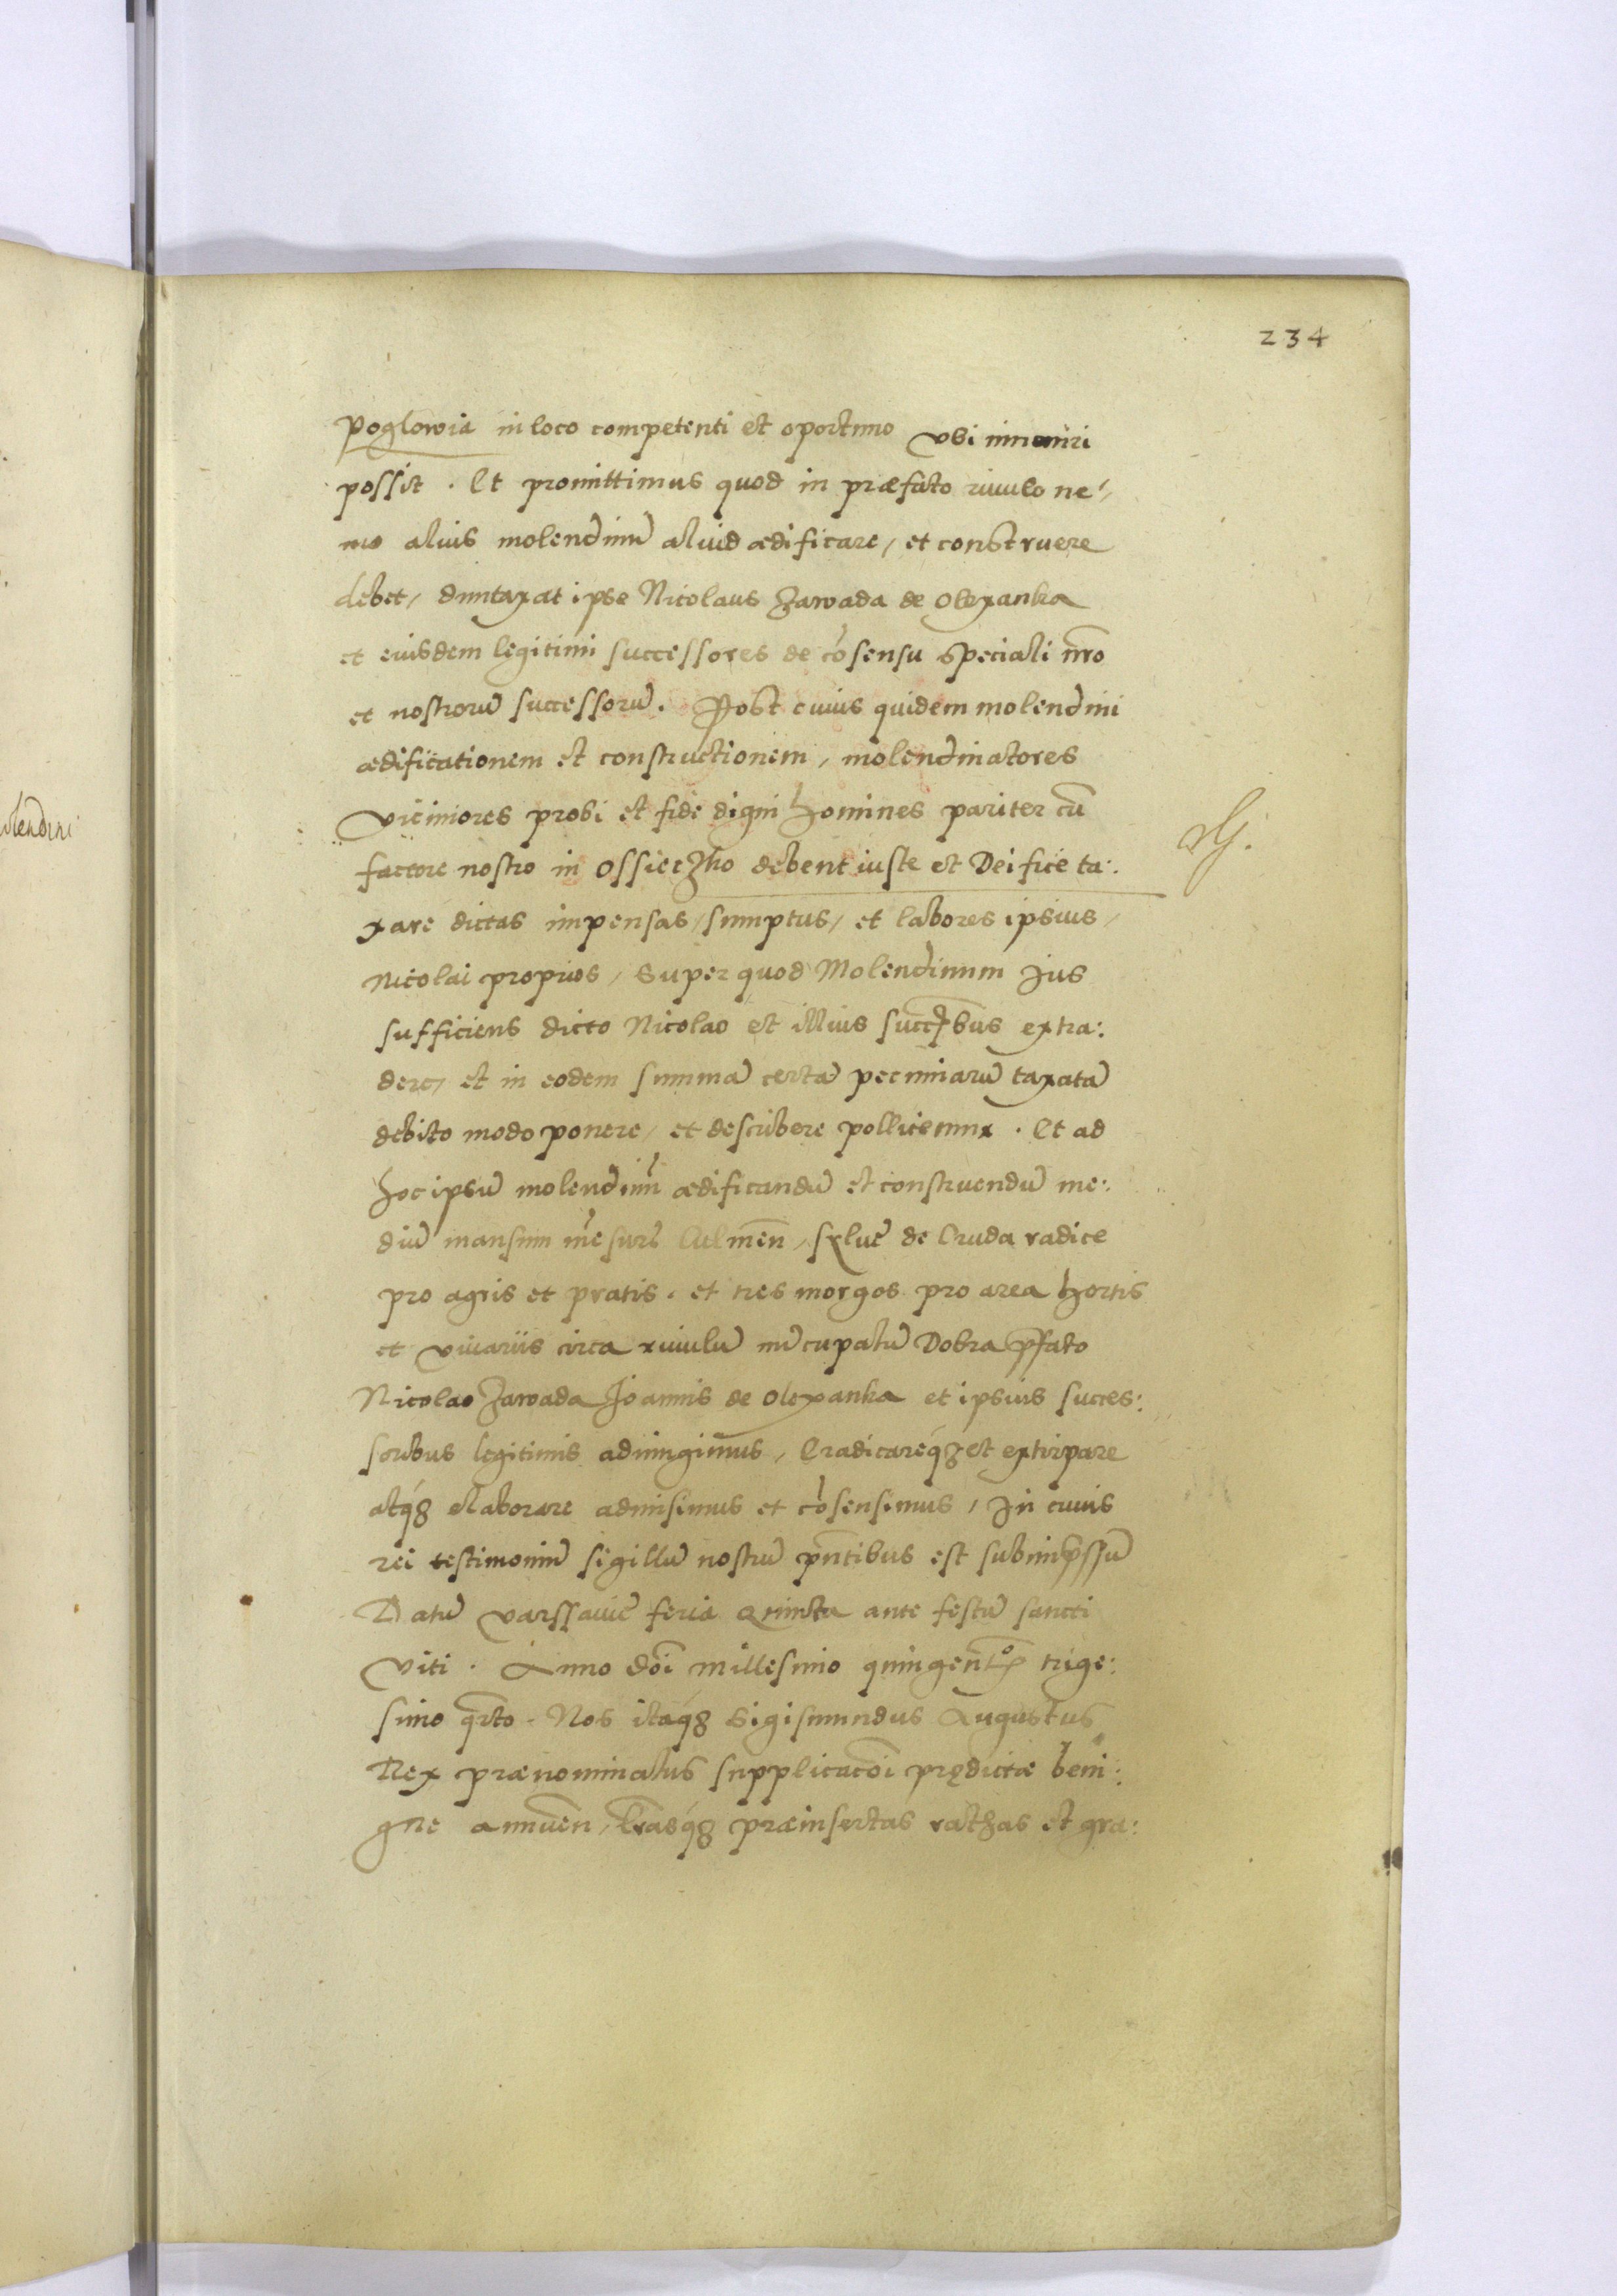 234
Poglowia in loco competenti et oportuno vbi inueniri
possit. Et promittimus quod in præfato riuulo ne-
mo alius molendinū aliud ædificare, et construere
debet, duntaxat ipse Nicolaus Zawada de Olexanka
et eiusdem legitimi successores de cōsensu speciali nr̄o
et nostrorū successorū. Post cuius quidem molendini
ædificationem et constructionem, molendinatores
viciniores probi et fide digni homines pariter cū
factore nostro in Ossieczko debent iuste et Deifice ta:
xare dictas impensas, sumptus, et labores ipsius,
Nicolai proprios, Super quod Molendinum Jus
sufficiens dicto Nicolao et illius succ̄bus extra:
dere, et in eodem summā certā pecuniarū taxatā
debito modo ponere, et describere pollicemur. Et ad
hoc ipsū molendinū ædificandū et construendū me:
diū mansum mēsurē Culmēn, syluē de Cruda radice
pro agris et pratis, et tres morgos pro area hortis
et viuariis circa riuulū nūcupatū Dobra p̄fato
Nicolao Zawada Joannis de Olexanka et ipsius succes:
soribus legitimis adiungimus, Eradicareq́ʒ et extirpare
atq́ʒ elaborare admisimus et cōsensimus, In cuius
rei testimoniū sigillū nostrū pn̄tibus est subimp̄ssū
Datū Varssauiē feria Quinta ante festū sancti
Viti. Anno dn̄i millesimo quingentō trige:
simo qr̄to. Nos itaq́ʒ Sigismundus Augustus
Rex prænominatus supplicacōi prędictæ beni:
gne annuēn, lr̄asq́ʒ præinsertas rathas et gra: